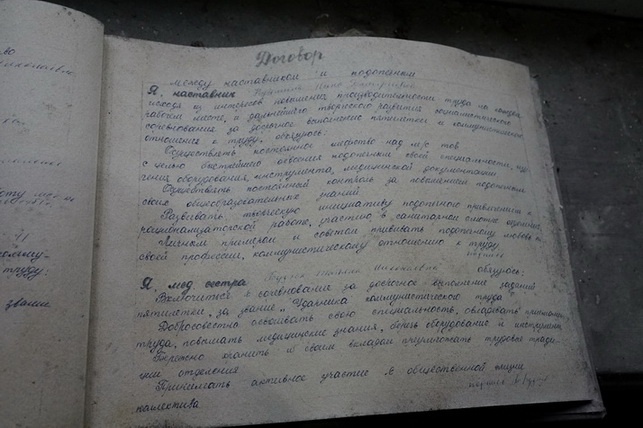 Договор
между наставником и подопечным
Я, наставник
исходя из интересов повышения производительности труда на каждом
рабочем месте, и дальнейшего творческого развития коммунистического
соревнования за досрочное выполнение пятилетки и коммунистического
отношения к труду, обязуюсь:
Осуществлять постоянное шефство над м/с тов
с целью быстрейшего освоения подопечным своей специальности, изу-
чения оборудования, инструмента, медицинской документации
Осуществлять постоянный контроль за повышением подопечным
своих общеобразовательных знаний
Развивать творческую инициативу подопечного привлечением к
рационализаторской работе, участию в санитарном
Личным примером и советом прививать подопечному любовь к
своей профессии, коммунистическому отношению к труду
подпись
Я, мед сестра обязуюсь:
Включиться в соревнование за досрочное выполнение заданий
пятилетки, за звание "Ударника коммунистического труда"
Добросовестно осваивать свою специальность, овладевать приемами
труда, повышать медицинские знания, беречь оборудование и инструмент
Бережно хранить и своим вкладом приумножать трудовые тради-
ции отделения
Принимать активное участие в общественной жизни
коллектива
подпись